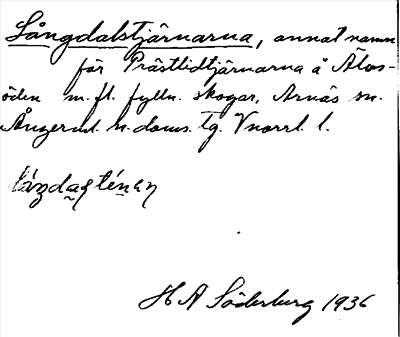 Långdalstjärnarna, annat namn
för Prästlidtjärnarna å Älvs-
öden m.fl. fylln. skogar, Arnäs sn.
Ångerml. n. doms. tg. Vnorrl. l.
H A Söderburg 1936